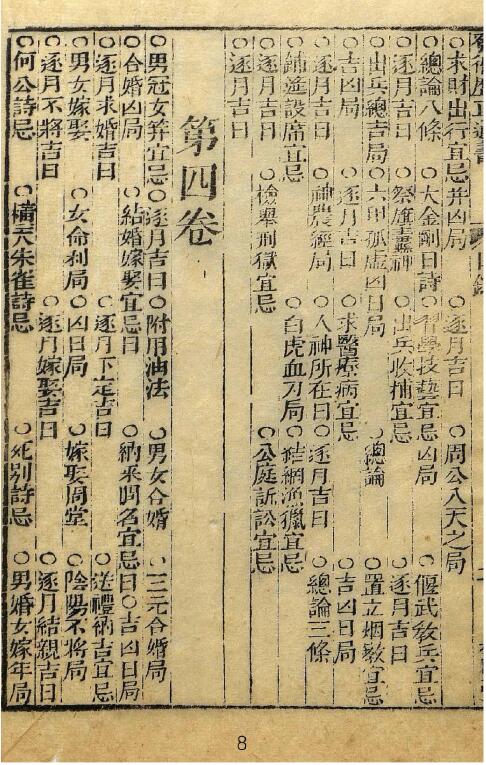 ○求財出行宜忌并凶局 ○逐月吉日 ○周公八天之局
○總論八條 ○大金剛日詩 ○習學技藝宜忌凶局 ○偃武敎兵宜忌
○逐月吉日 ○祭旗纛神 ○出兵收捕宜忌 ○逐月吉日
○出兵總吉局 ○六甲孤虛凶日局 ○總論 ○置立烟墩宜忌
○吉凶局 ○逐月吉日 ○求醫療病宜忌 ○吉凶日局
○逐月吉日 ○神農經局 ○人神所在日 ○逐月吉日 ○總論三條
○鋪筵設席宜忌 ○白虎血刃局 ○結網漁獵宜忌
○逐月吉日 ○檢舉刑獄宜忌 ○公庭訴訟宜忌
○逐月吉日
第四卷
○男冠女笄宜忌 ○逐月吉日 ○附用油法 ○男女合婚 ○三元合婚局
○合婚凶局 ○結婚嫁娶宜忌日 ○納采問名宜忌日 ○吉凶日局
○逐月求婚吉日 ○逐月下定吉日 ○送禮納吉宜忌
○男女嫁娶 ○女命利局 ○凶日局 ○嫁娶周堂 ○陰陽不將局
○逐月不將吉日 ○逐月嫁娶吉日 ○逐月結親吉日
○何公詩忌 ○橫天朱雀詩忌 ○死別詩忌 ○男婚女嫁年局
8